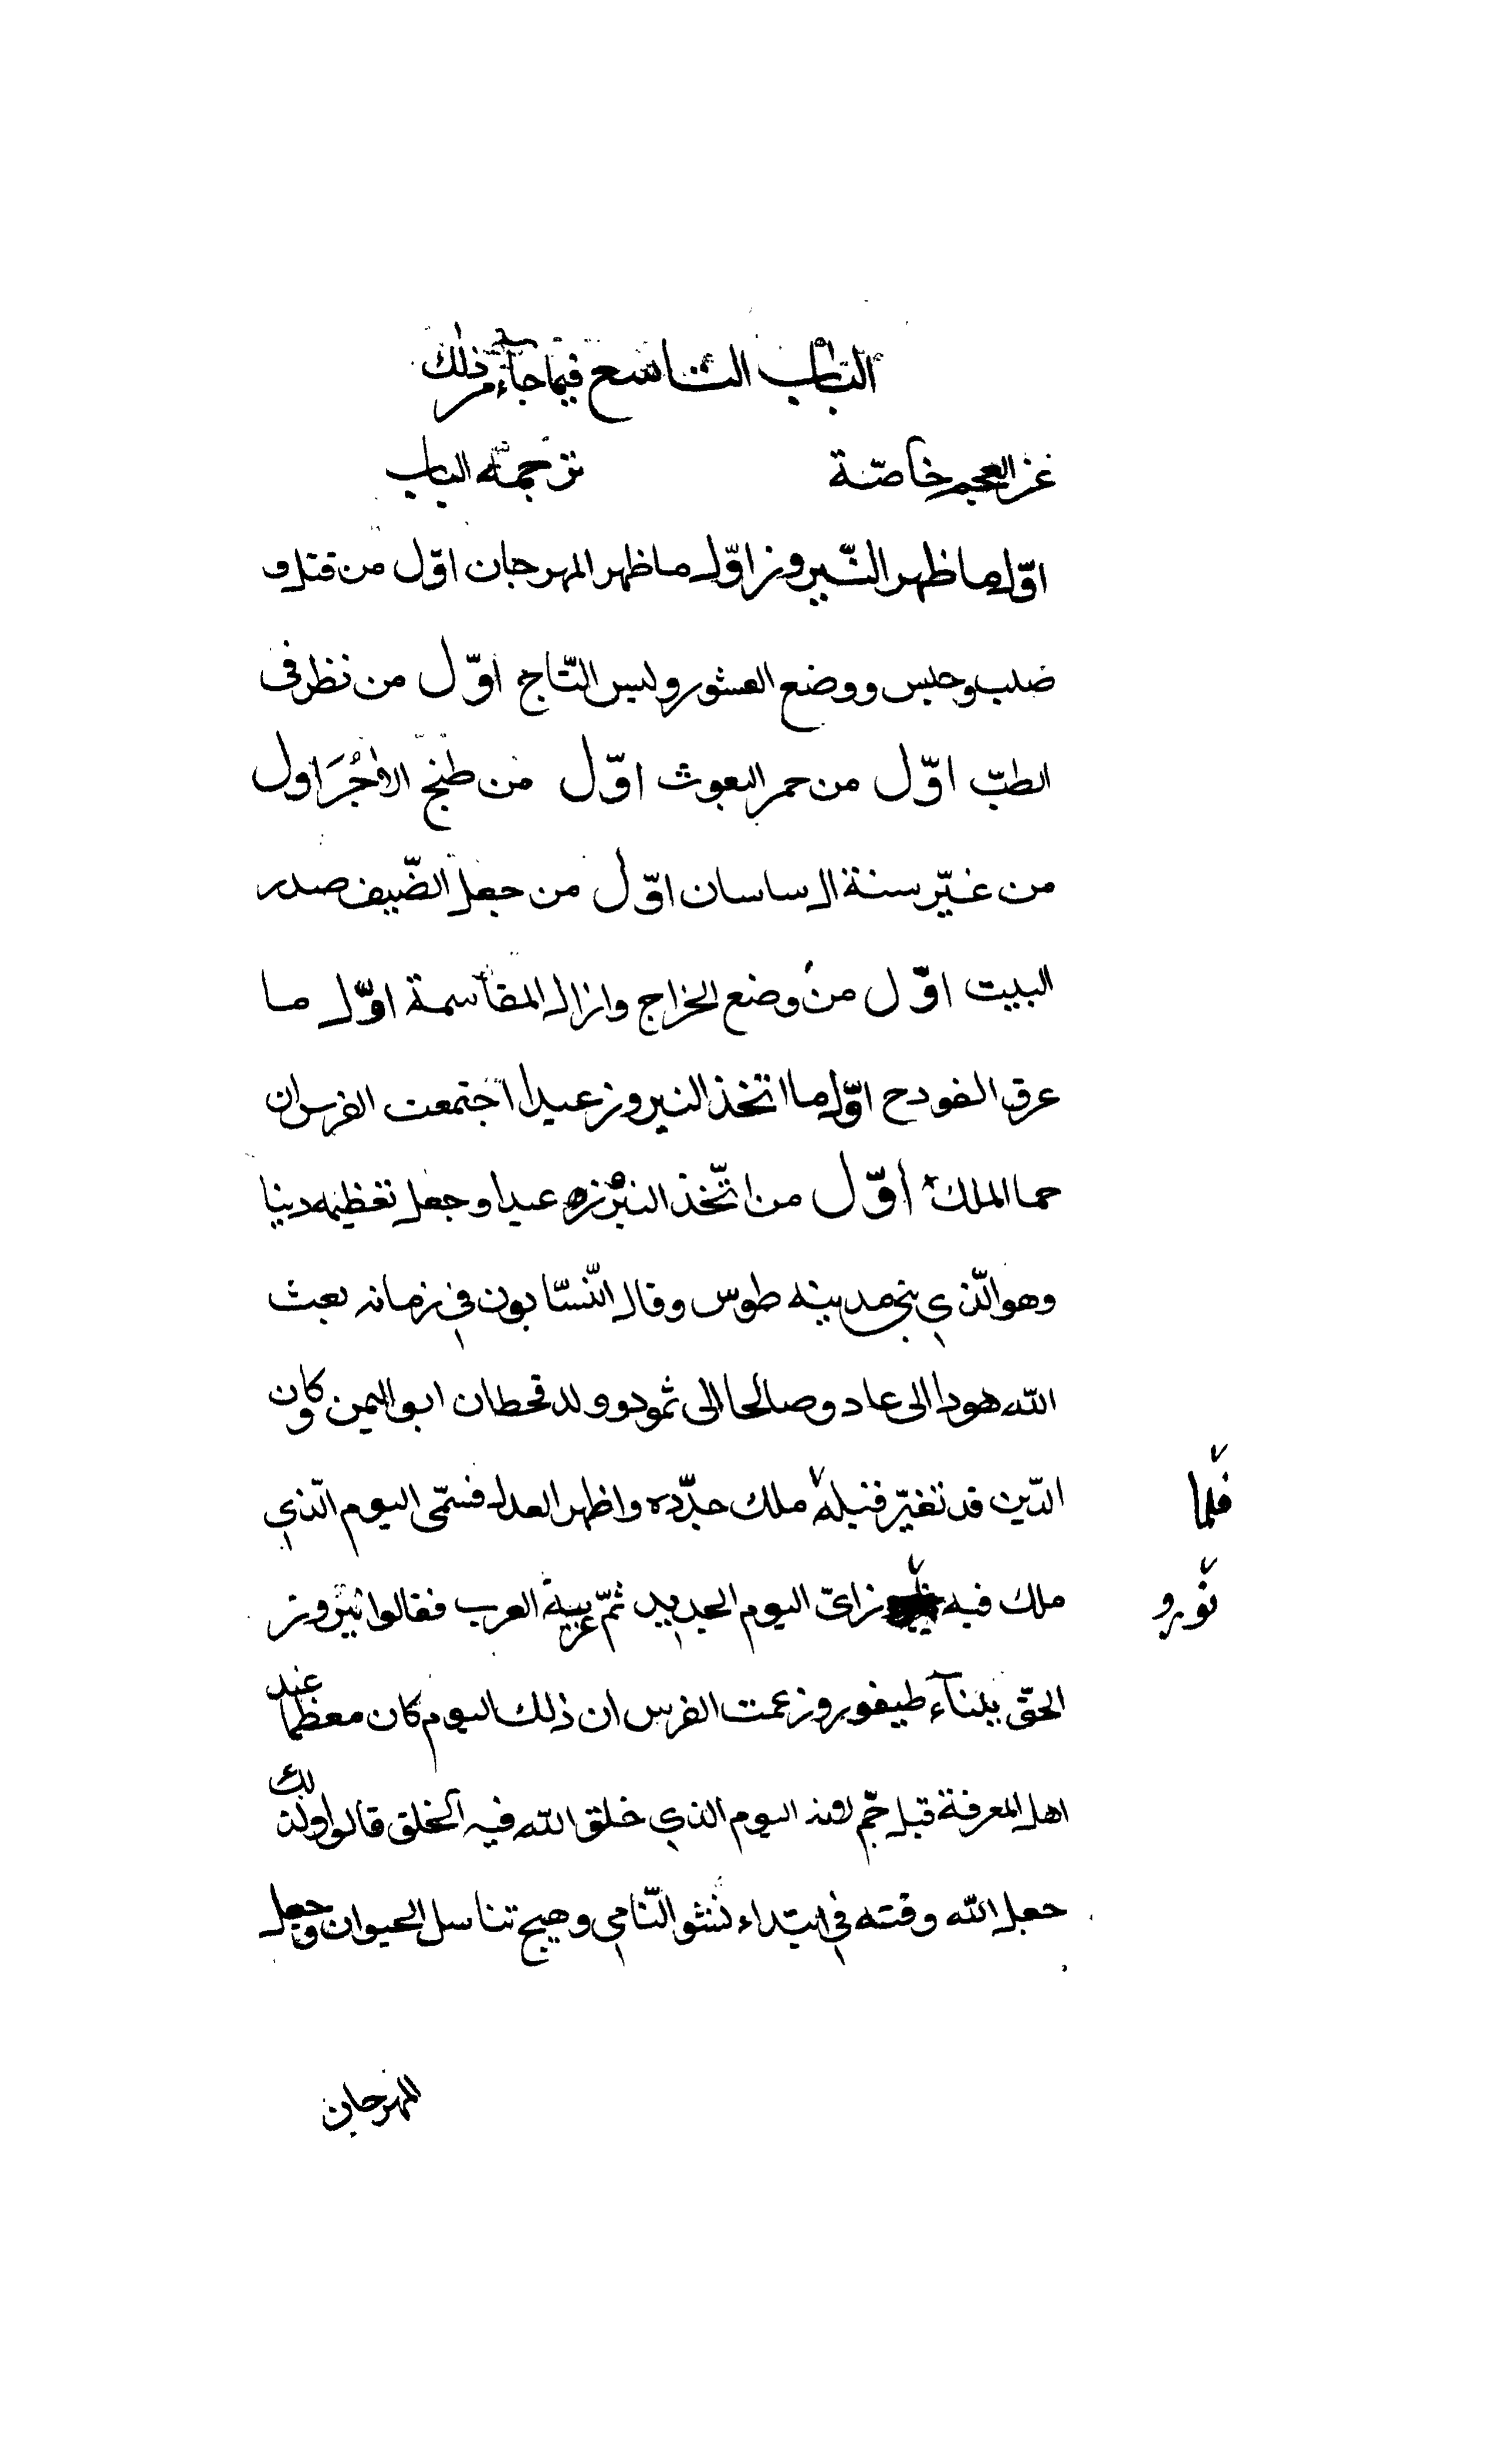 الباب التاسع فيما جآء من ذلك
عن العجم خاصّة ترجمة الباب
اوّل ما ظهر النّيروز اوّل ما ظهر المهرجان اوّل من قتل و
صلب وحبس ووضع العشور ولبس التّاج اوّل من نظر فى
الطبّ اوّل من حمر البعوث اوّل من طبخ الاجُرَ اول
من غيّر سنة ال ساسان اوّل من جعل الضّيف صدر
البيت اوّل من وضع الخراج وازال المقاسمة اوّل ما
عرف اوّل ما اتخذ النيروز عيدا اجتمعت الفرس ان
جما الملك اوّل من اتّخذ عيدا وجعل تعظيمه دينا
وهو الّذي بنى مدينه طوس وقال النّسّابون في زمانه بعث
الله هودا الى عاد وصالحا الى ثمود وولد قحطان ابو اليمن وكان
الدّين قد تغيّر قبله فلما ملك جدّده واظهر العدل فسمّى اليوم الّذي
ملك فيه نورو ز اىّ اليوم الجديد ثمّ عربية العرب فقالوا نيروز
الحق ببناء طيفور وزعمت الفرس ان ذلك اليوم كان معظما عند
اهل المعرفة قبل جّم لانه اليوم الذي خلق الله فيه الخلق قالوا ولذلك
جعل الله وقته في ابتداء نشو النّامي وهيج تناسل الحيوان وجعل
المهرجان